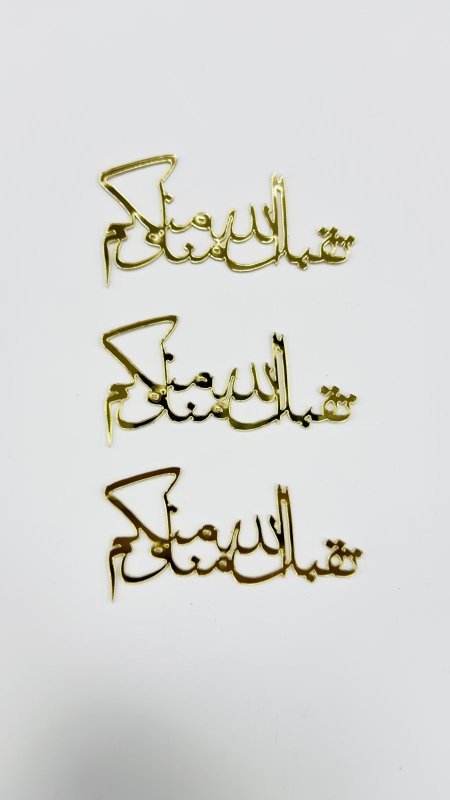 تقبل الله منا ومنكم
تقبل الله منا ومنكم
تقبل الله منا ومنكم